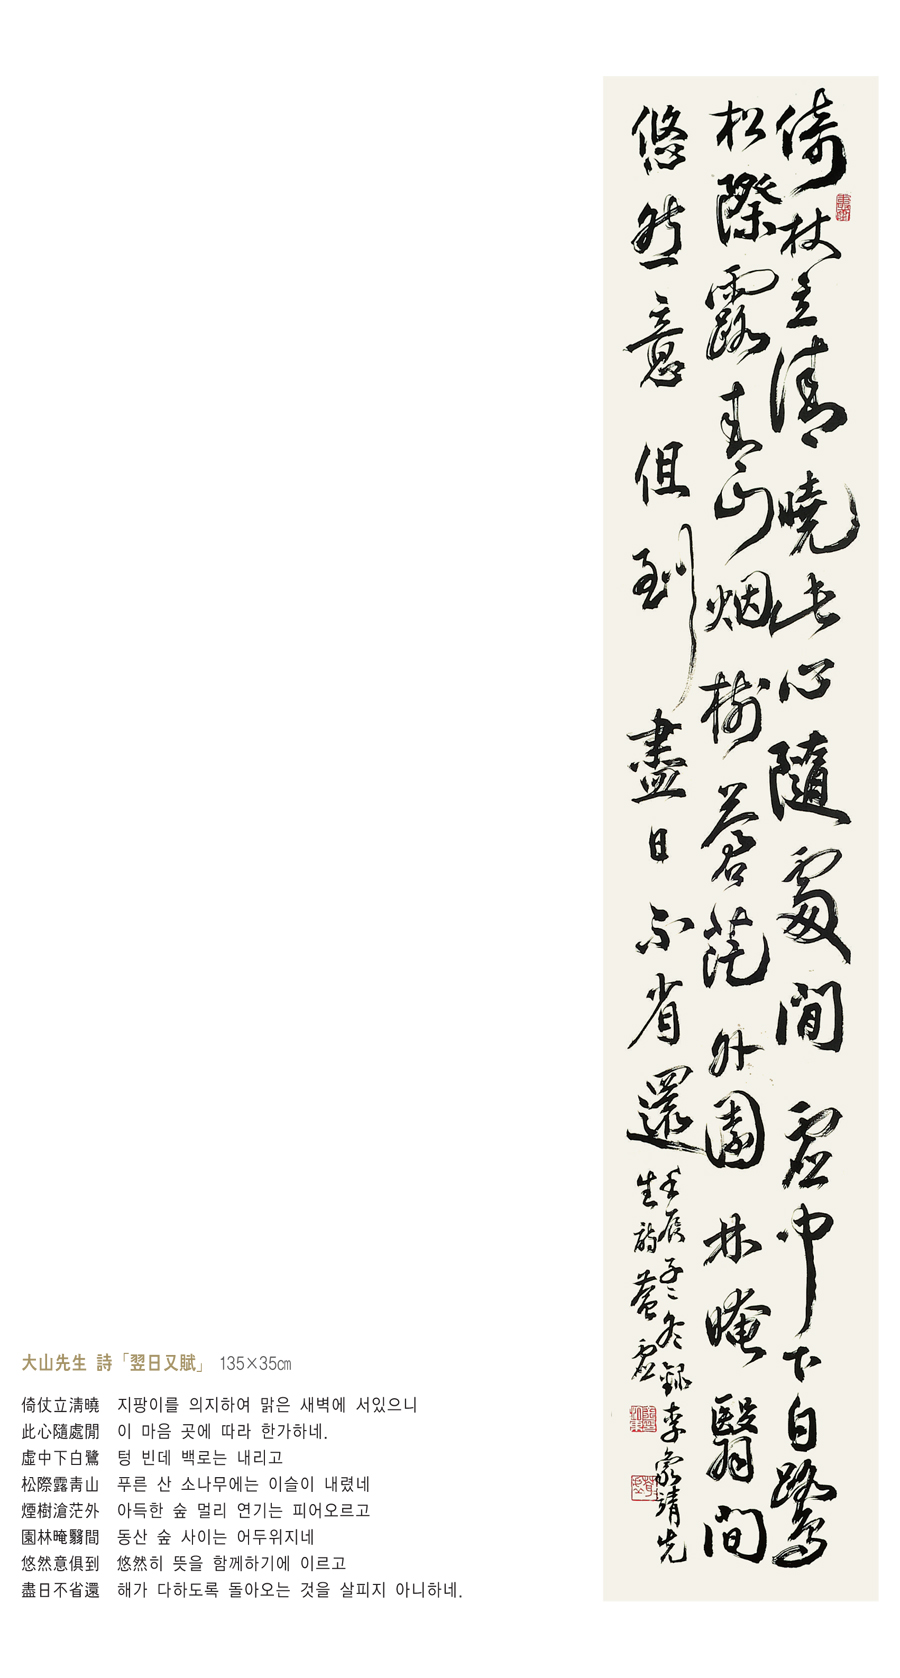 倚杖立清曉此心隨處閒虛中下白鷺
松際露青山烟樹蒼茫外園林晻翳間
悠然意但到盡日不省還
壬辰孟冬錄李象靖先
生詩
大山先生 詩「翌日又賦」 135×35㎝
倚仗立淸曉 지팡이를 의지하여 맑은 새벽에 서있으니
此心隨處閒 이 마음 곳에 따라 한가하네.
虛中下白鷺 텅 빈데 백로는 내리고
松際露靑山 푸른 산 소나무에는 이슬이 내렸네
煙樹滄茫外 아득한 숲 멀리 연기는 피어오르고
園林晻翳間 동산 숲 사이는 어두위지네
悠然意俱到 悠然히 뜻을 함께하기에 이르고
盡日不省還 해가 다하도록 돌아오는 것을 살피지 아니하네.